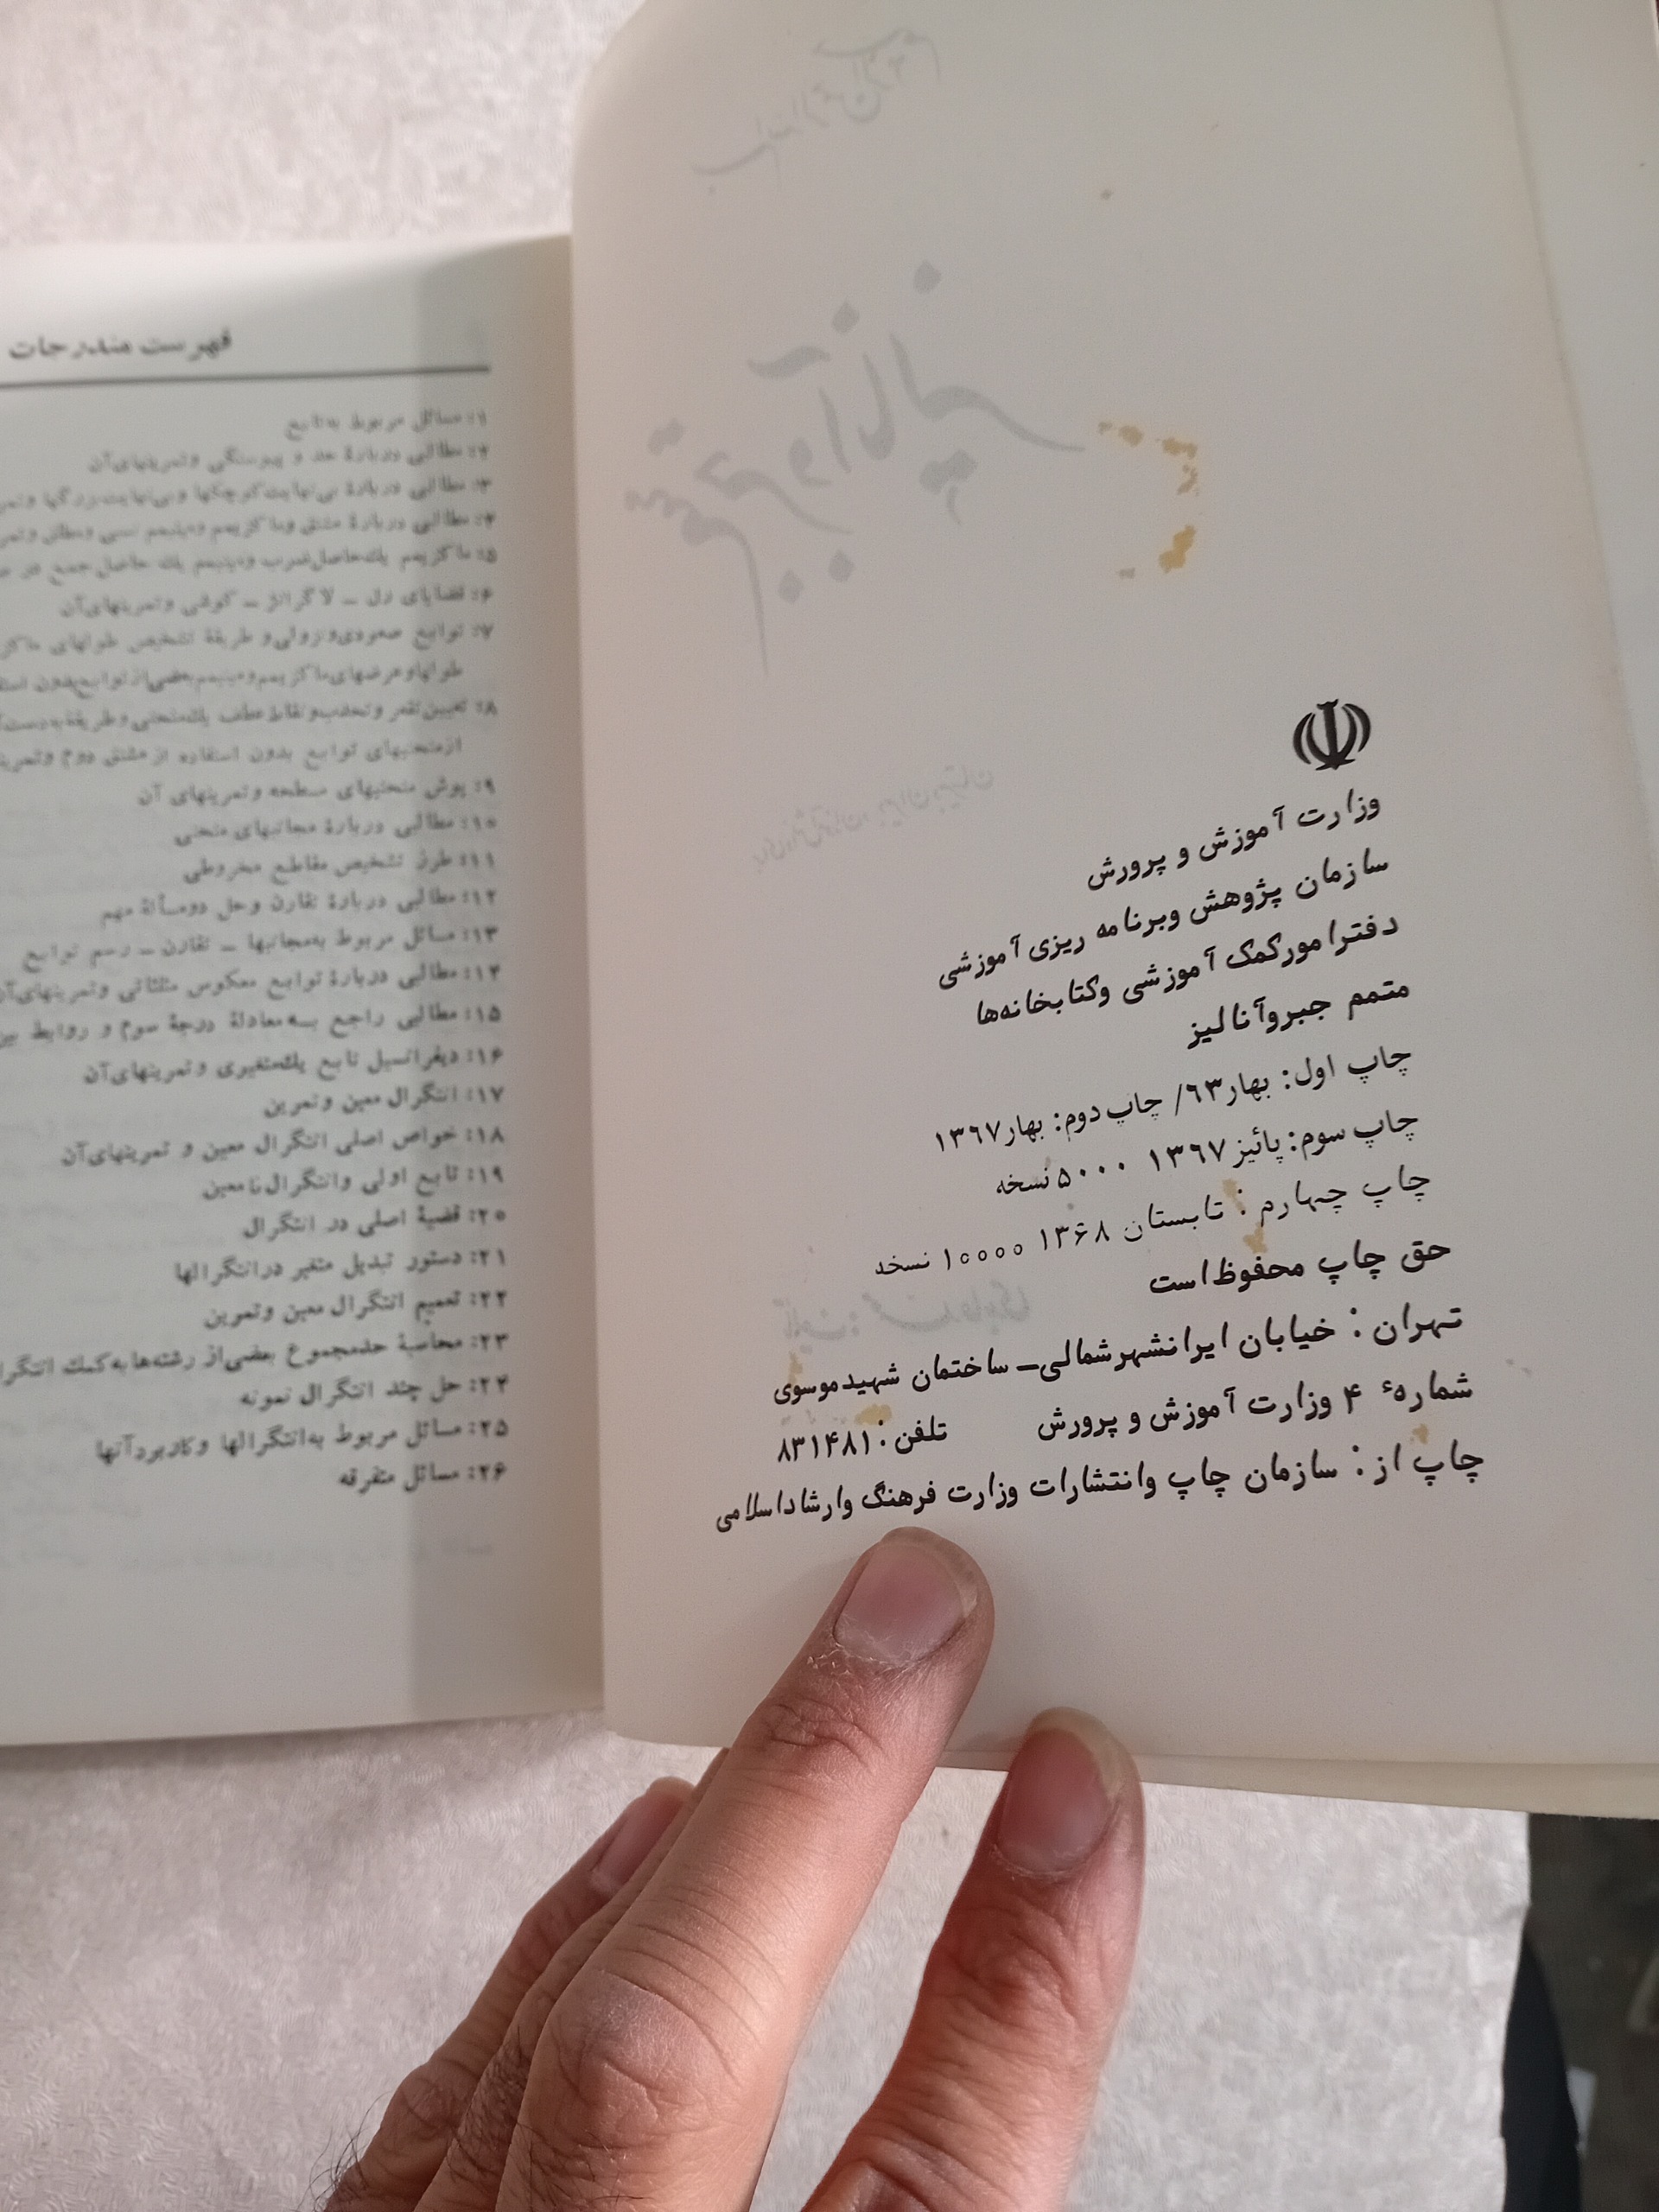 وزارت آموزش و پرورش
سازمان پژوهش وبرنامه ریزی آموزشی
دفتر امور کمک آموزشی وکتابخانه‌ها
متمم جبر وآنالیز
چاپ اول: بهار ۶۳/ چاپ دوم: بهار ۱۳۶۷
چاپ سوم: پائیز ۱۳۶۷ ۵۰۰۰ نسخه
چاپ چهارم : تابستان ۱۳۶۸ ۱۰۰۰۰ نسخه
حق چاپ محفوظ است
تهران : خیابان ایرانشهر شمالی_ ساختمان شهید موسوی
شمارهٔ ۴ وزارت آموزش و پرورش تلفن : ۸۳۱۴۸۱
چاپ از : سازمان چاپ وانتشارات وزارت فرهنگ وارشاد اسلامی
فهرست مندرجات
۱: مسائل مربوط به تابع
۲: مطالبی دربارهٔ حد و پیوستگی وتمرینهای آن
۳: مطالبی دربارهٔ بی‌نهایت کوچکها وبی‌نهایت بزرگها
۴: مطالبی دربارهٔ مشتق وماکزیمم ومینیمم نسبی ومطلق
۵: ماکزیمم یك حاصل ضرب ومینیمم یك حاصل جمع در
۶: قضایای رل _ لاگرانژ _ کوشی وتمرینهای آن
۷: توابع صعودی ونزولی و طریقهٔ تشخیص طولهای
طولها وعرضهای ماکزیمم ومینیمم بعضی از توابع بدون
۸: تعیین تقعر وتحدب ونقاط عطف یك منحنی وطریقهٔ
از منحنیهای توابع بدون استفاده از مشتق دوم
۹: پوش منحنیهای مسطحه وتمرینهای آن
۱۰: مطالبی دربارهٔ مجانبهای منحنی
۱۱: طرز تشخیص مقاطع مخروطی
۱۲: مطالبی دربارهٔ تقارن وحل دومسألهٔ مهم
۱۳: مسائل مربوط به مجانبها _ تقارن _ رسم توابع
۱۴: مطالبی دربارهٔ توابع معکوس مثلثاتی وتمرینهای آن
۱۵: مطالبی راجع به معادلهٔ درجهٔ سوم و روابط بین
۱۶: دیفرانسیل تابع یك متغیری وتمرینهای آن
۱۷: انتگرال معین وتمرین
۱۸: خواص اصلی انتگرال معین و تمرینهای آن
۱۹: تابع اولی وانتگرال نامعین
۲۰: قضیهٔ اصلی در انتگرال
۲۱: دستور تبدیل متغیر در انتگرالها
۲۲: تعمیم انتگرال معین وتمرین
۲۳: محاسبهٔ حد مجموع بعضی از رشته‌ها به کمك
۲۴: حل چند انتگرال نمونه
۲۵: مسائل مربوط به انتگرالها وکاربرد آنها
۲۶: مسائل متفرقه